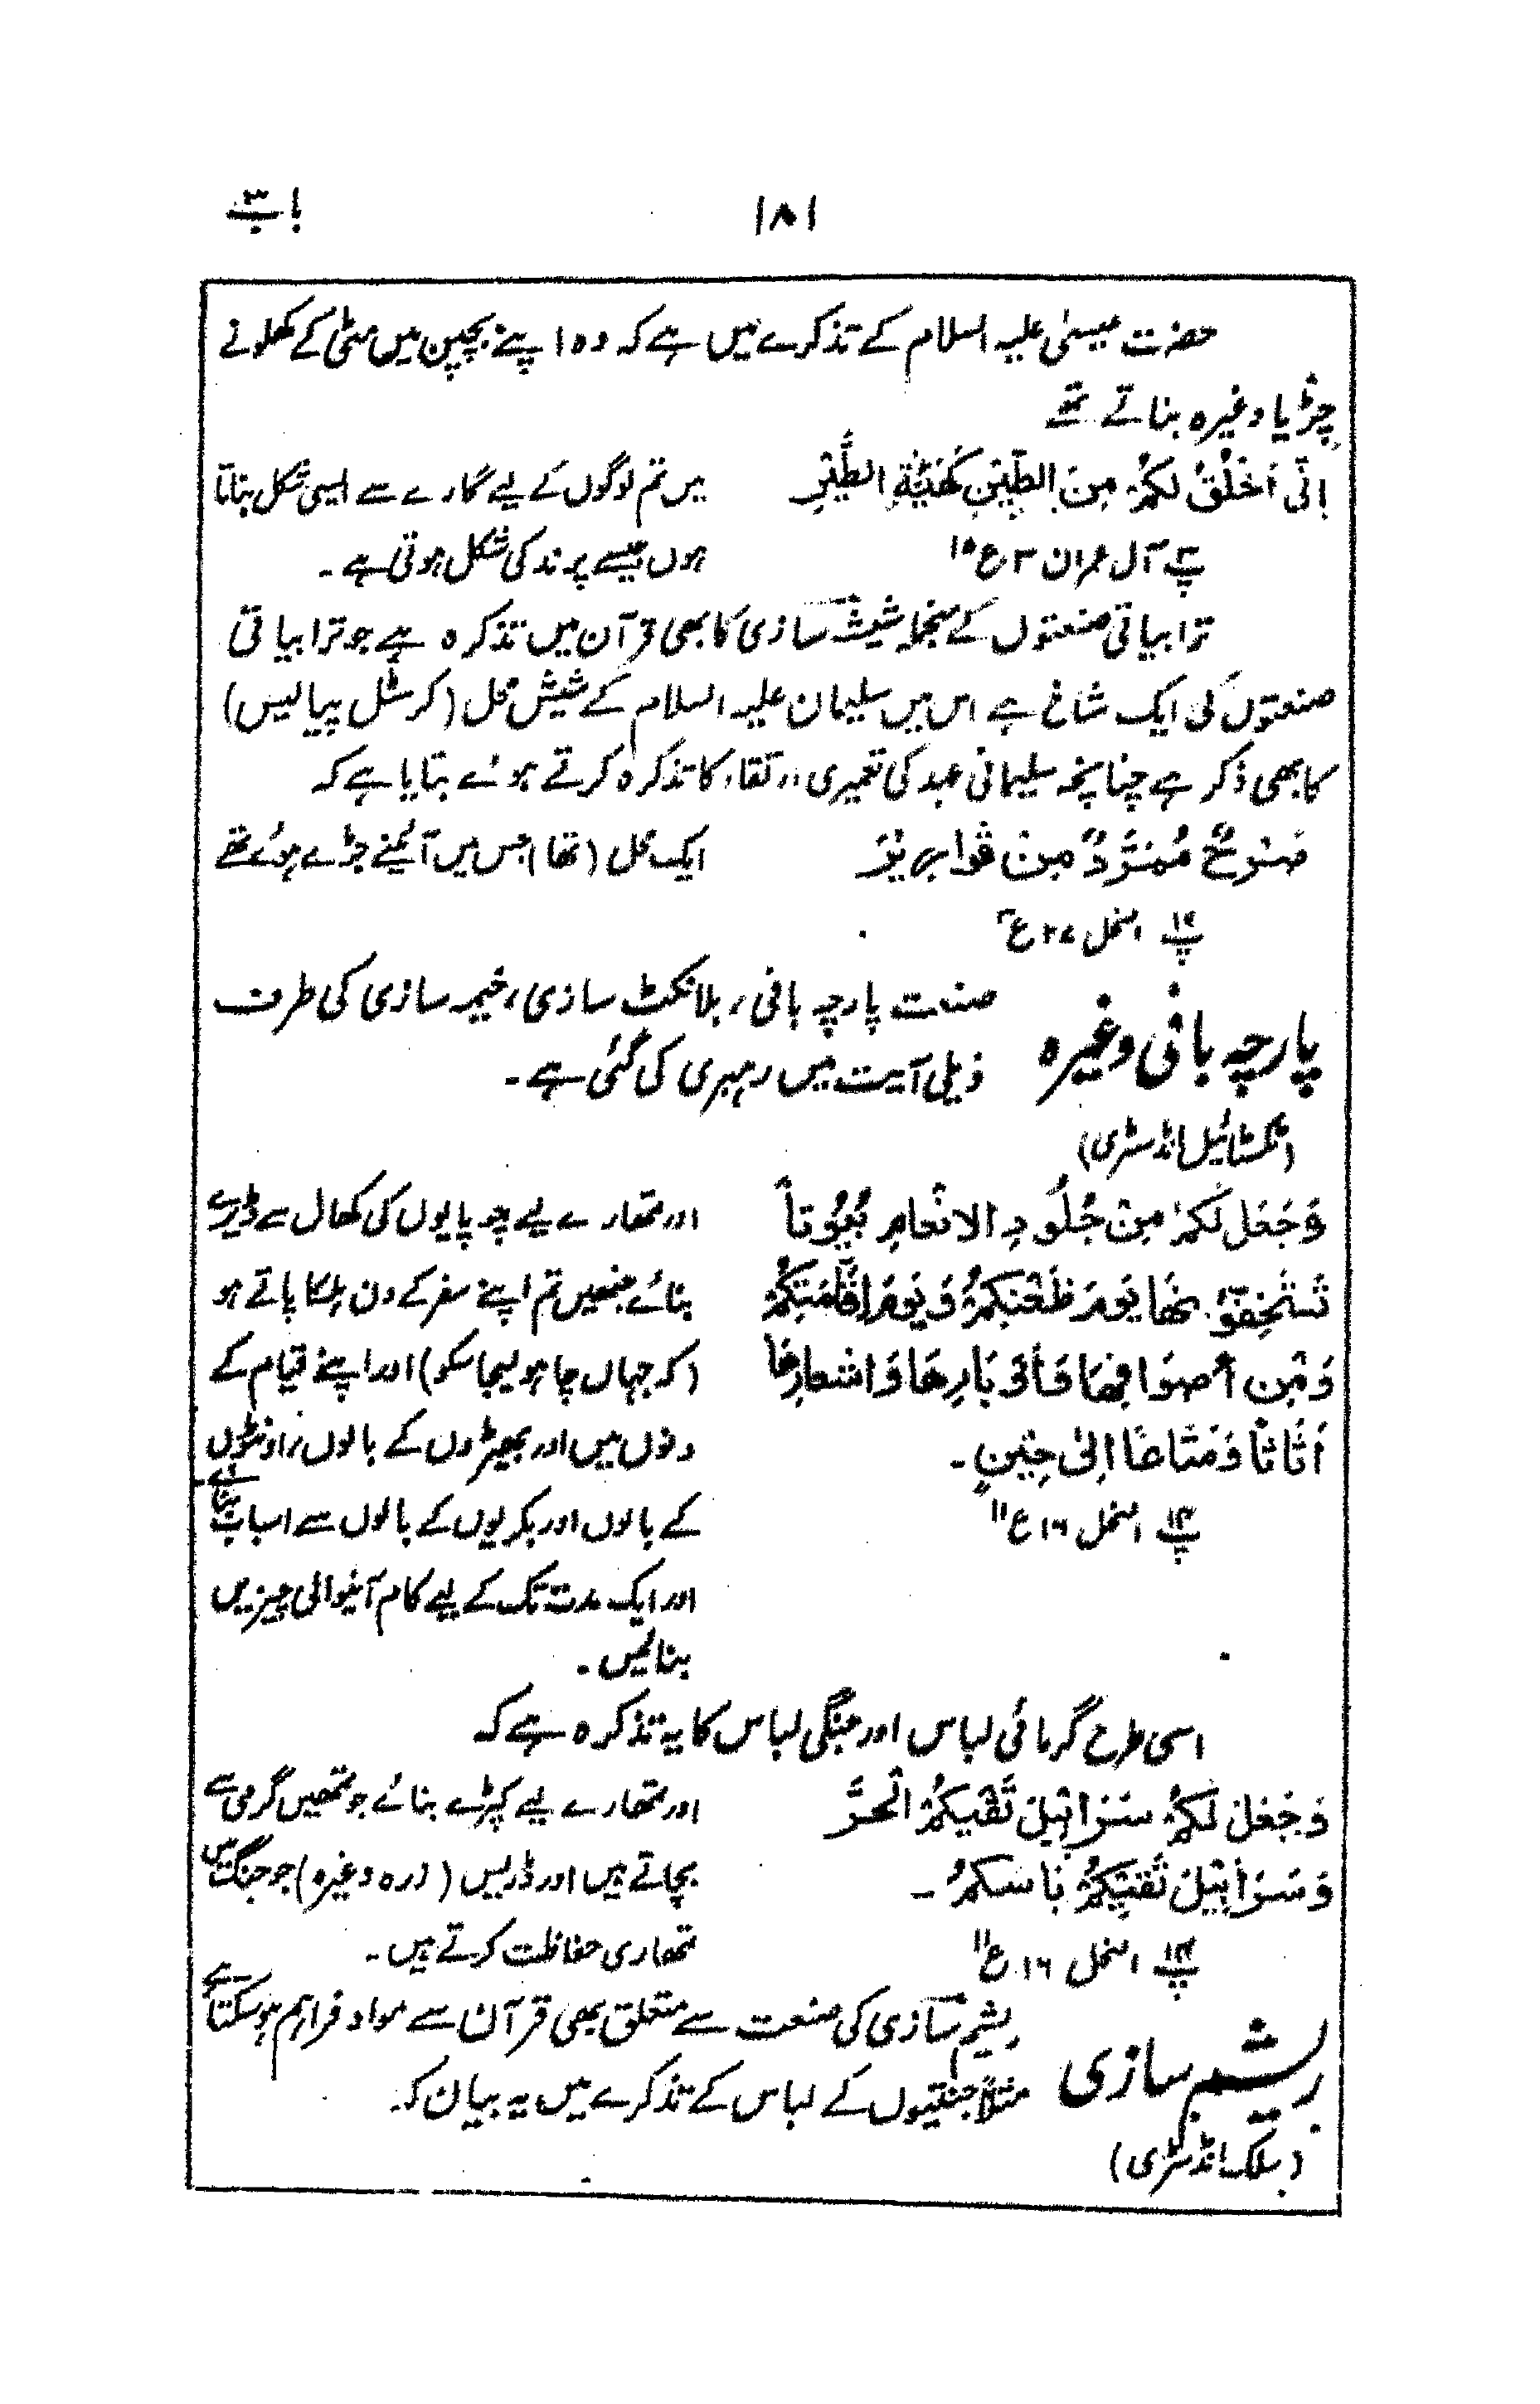 باب ۳
۱۸۱
حضرت عیسیٰ علیہ السلام کے تذکرے میں ہے کہ وہ اپنے بچپن میں مٹی کے کھلونے
چڑیا وغیرہ بناتے تھے
اِنِّی اَخْلُقُ لَکُمْ مِنَ الطِّیْنِ کَھَیْئَۃِ الطَّیْرِ
پ۳ آل عمران ۳ ع ۱۵
میں تم لوگوں کے لیے گارے سے ایسی شکل بناتا
ہوں جیسے پرند کی شکل ہوتی ہے۔
ترابیاتی صنعتوں کے منجملہ شیشہ سازی کا بھی قرآن میں تذکرہ ہے جو ترابیاتی
صنعتوں کی ایک شاخ ہے اس میں سلیمان علیہ السلام کے شیش محل (کرسٹل پیالیس)
کا بھی ذکر ہے چنانچہ سلیمانی عہد کی تعمیری ارتقاء کا تذکرہ کرتے ہوئے بتایا ہے کہ
صَرْحٌ مُّمَرَّدٌ مِنْ قَوَارِیْرَ
ایک محل (تھا) جس میں آئینے جڑے ہوئے تھے
پ۱۹ النمل ۲۷ ع
پارچہ بافی وغیرہ
(ٹکسٹائیل انڈسٹری)
صنعت پارچہ بافی، بلانکٹ سازی، خیمہ سازی کی طرف
ذیلی آیت میں رہبری کی گئی ہے۔
وَجَعَلَ لَکُمْ مِنْ جُلُوْدِ الانْعَامِ بُیُوْتاً
تَسْتَخِفُّوْنَھَا یَوْمَ ظَعْنِکُمْ وَیَوْمَ اِقَامَتِکُمْ
وَمِنْ اَصْوَافِھَا وَاَوْبَارِھَا وَاشعارِھَا
اَثَاثاً وَمَتَاعًا اِلیٰ حِیْنٍ۔
پ۱۴ النحل ۱۶ ع ۱۱
اور تمھارے لیے چوپایوں کی کھال سے ڈیرے
بنائے جنھیں تم اپنے سفر کے دن ہلکا پاتے ہو
(کہ جہاں چاہو لیجا سکو) اور اپنے قیام کے
دنوں میں اور بھیڑوں کے بالوں، اونٹوں
کے بالوں اور بکریوں کے بالوں سے اسباب بنائے
اور ایک مدت تک کے لیے کام آنیوالی چیزیں
بنائیں۔
اسی طرح گرمائی لباس اور جنگی لباس کا یہ تذکرہ ہے کہ
وَجَعَلَ لَکُمْ سَرَابِیْلَ تَقِیْکُمُ الْحَرَّ
وَسَرَابِیْلَ تَقِیْکُمْ بَاسَکُمْ۔
پ۱۴ النحل ۱۶ ع ۱۱
اور تمھارے لیے کپڑے بنائے جو تمھیں گرمی سے
بچاتے ہیں اور ڈریس (زرہ وغیرہ) جو جنگ میں
تمھاری حفاظت کرتے ہیں۔
ریشم سازی
(سلک انڈسٹری)
ریشم سازی کی صنعت سے متعلق بھی قرآن سے مواد فراہم ہو سکتا ہے
مثلاً جنتیوں کے لباس کے تذکرے میں یہ بیان کہ